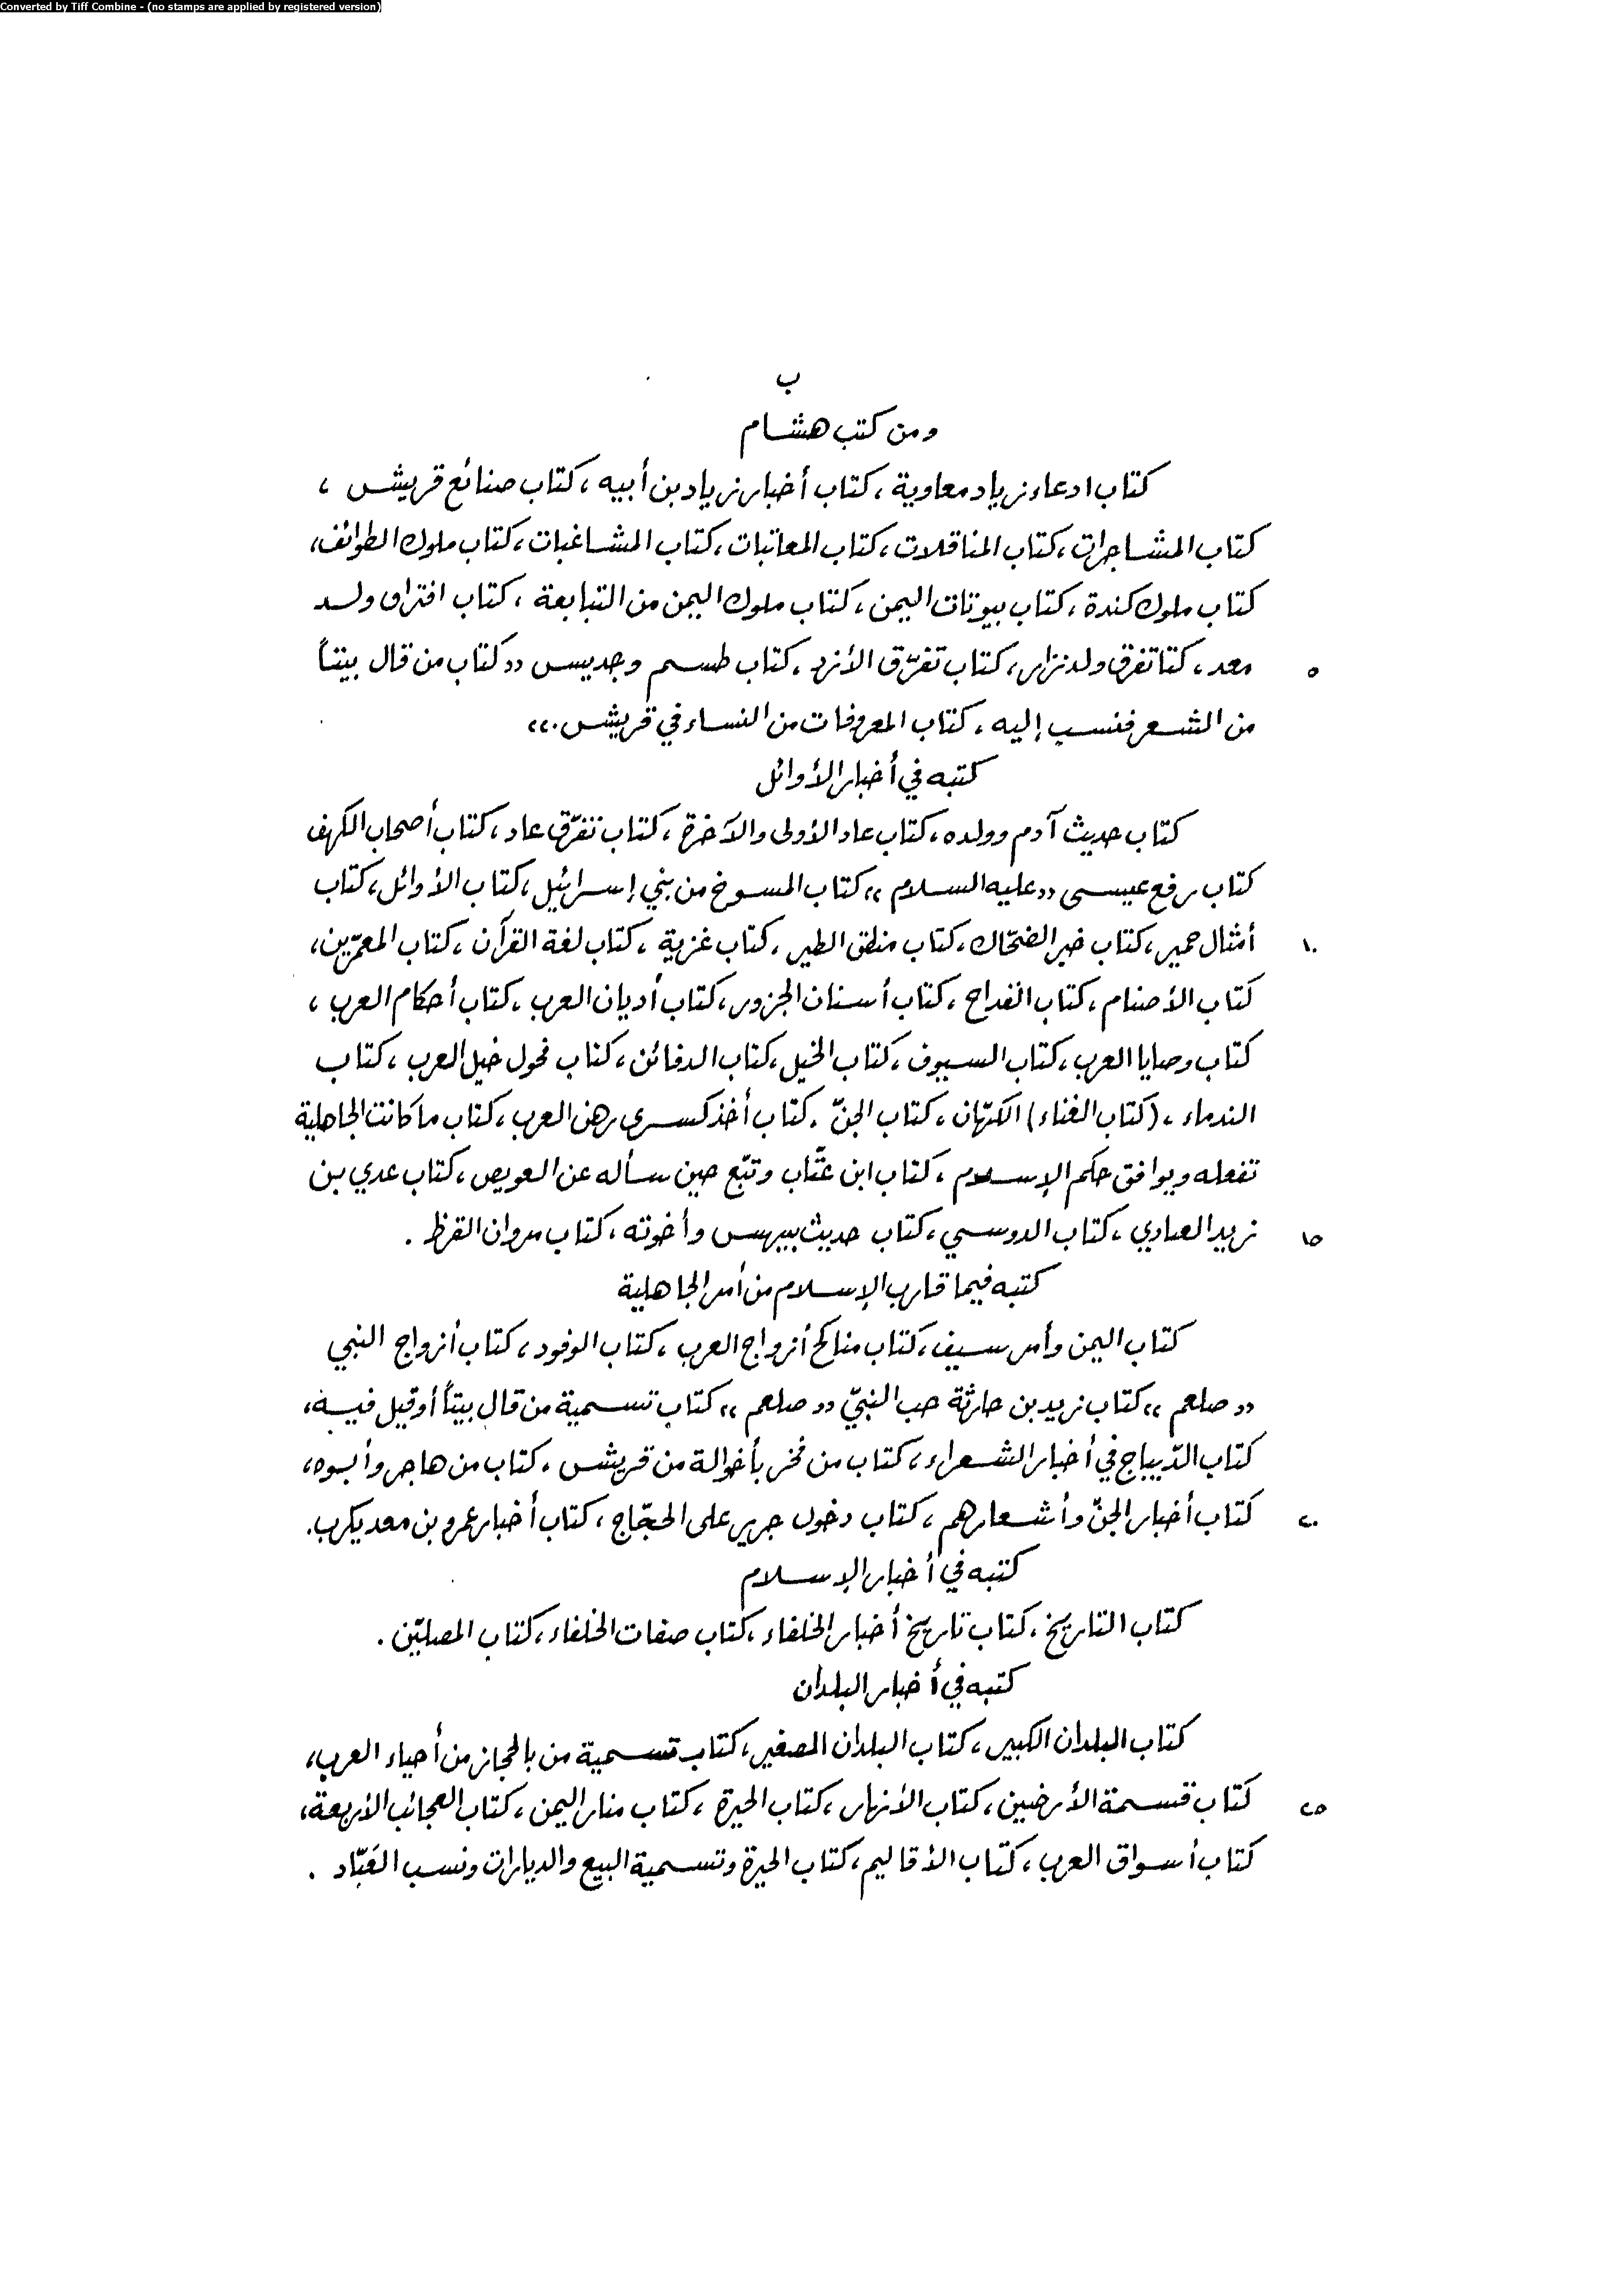 Converted by Tiff Combine - (no stamps are applied by registered version)
ب
ومن كتب هشام
كتاب ادعاء زياد معاوية ، كتاب أخبار زياد بن أبيه ، كتاب صنائع قريش ،
كتاب المشاجرات ، كتاب المناقلات ، كتاب المعاتبات ، كتاب المشاغبات ، كتاب ملوك الطوائف ،
كتاب ملوك كندة ، كتاب بيوتات اليمن ، كتاب ملوك اليمن من التبابعة ، كتاب افتراق ولد
معد ، كتا تفرق ولد نزار ، كتاب تفرّق الأزد ، كتاب طسم وجديس « كتاب من قال بيتاً ٥
من الشعر فنسب إليه ، كتاب المعروفات من النساء في قريش . »
كتبه في أخبار الأوائل
كتاب حديث آدم وولده ، كتاب عاد الأولى والآخرة ، كتاب تفرّق عاد ، كتاب أصحاب الكهف
كتاب رفع عيسى « عليه السلام » كتاب المسوخ من بني إسرائيل ، كتاب الأوائل ، كتاب
أمثال حمير ، كتاب خبر الضحّاك ، كتاب منطق الطير ، كتاب غزية ، كتاب لغة القرآن ، كتاب المعمّرين ، ١٠
كتاب الأصنام ، كتاب القداح ، كتاب أسنان الجزور ، كتاب أديان العرب ، كتاب أحكام العرب ،
كتاب وصايا العرب ، كتاب السيوف ، كتاب الخيل ، كتاب الدفائن ، كتاب فحول خيل العرب ، كتاب
الندماء ، (كتاب الغناء) الكهّان ، كتاب الجنّ . كتاب أخذ كسرى رهن العرب ، كتاب ما كانت الجاهلية
تفعله ويوافق حكم الإسلام ، كتاب ابن عتّاب وتبّع حين سأله عن العويص ، كتاب عدي بن
زيد العبادي ، كتاب الدوسي ، كتاب حديث بيهس وأخوته ، كتاب مروان القرظ . ١٥
كتبه فيما قارب الإسلام من أمر الجاهلية
كتاب اليمن وأمر سيف ، كتاب مناكح أزواج العرب ، كتاب الوفود ، كتاب أزواج النبي
« صلعم » كتاب زيد بن حارثة حب النبيّ « صلعم » كتاب تسمية من قال بيتاً أو قيل فيه ،
كتاب الدّيباج في أخبار الشعراء ، كتاب من فخر بأخوالة من قريش . كتاب من هاجر وأبوه ،
كتاب أخبار الجنّ وأشعارهم ، كتاب دخول جرير على الحجّاج ، كتاب أخبار عمرو بن معديكرب . ٢٠
كتبه في أخبار الإسلام
كتاب التاريخ ، كتاب تاريخ أخبار الخلفاء ، كتاب صفات الخلفاء ، كتاب المصلّين .
كتبه في أخبار البلدان
كتاب البلدان الكبير ، كتاب البلدان الصغير ، كتاب تسمية من بالحجاز من أحياء العرب ،
كتاب قسمة الأرضين ، كتاب الأنهار ، كتاب الحيرة ، كتاب منار اليمن ، كتاب العجائب الأربعة ، ٢٥
كتاب أسواق العرب ، كتاب الأقاليم ، كتاب الحيرة وتسمية البيع والديارات ونسب العَبّاد .